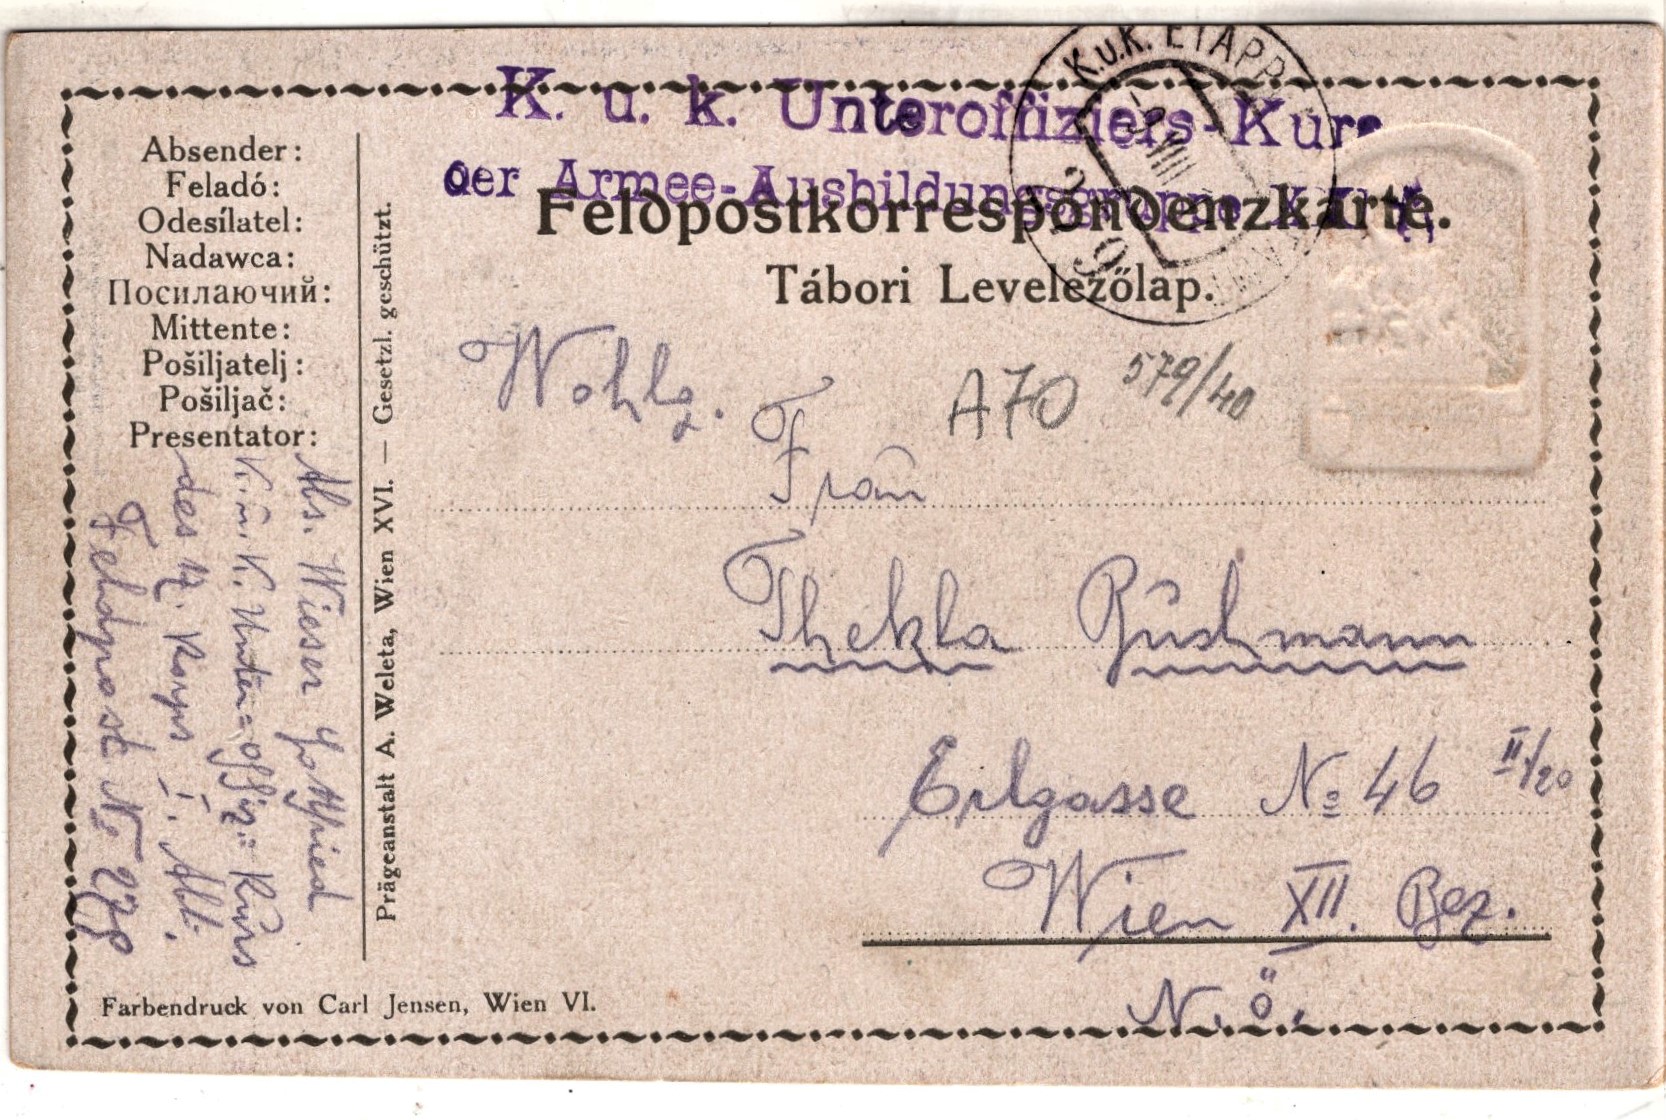 K. u. k. Unteroffiziers-Kurs
der Armee-Ausbildungsgruppe
K.u.K. ETAPP
VIII
Feldpostkorrespondenzkarte.
Tábori Levelezőlap.
Absender:
Feladó:
Odesílatel:
Nadawca:
Посилаючий:
Mittente:
Pošiljatelj:
Pošiljač:
Presentator:
Abs. Wieser Gottfried
K. u. K. Unter=offiz:= Kurs
des 12. Korps I. Abt.
Feldpost No 278
Prägeanstalt A. Weleta, Wien XVI. — Gesetzl. geschützt.
Wohlg.
A70 579/40
Frau
Thekla Buschmann
Erlgasse No 46 II/20
Wien XII. Bez.
N. Ö.
Farbendruck von Carl Jensen, Wien VI.